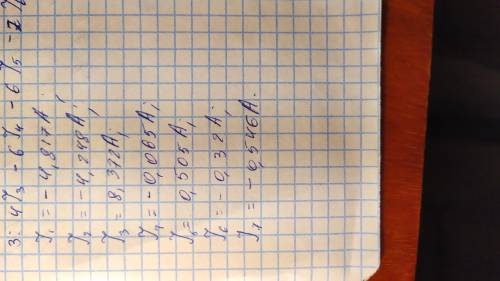 3: 4I₃ - 6I₄ - 6I₅ - 7I₆
I₁ = -4,817A
I₂ = -4,248A;
I₃ = 8,372A;
I₄ = -0,065A;
I₅ = 0,505A;
I₆ = -0,32A;
I₇ = -0,546A.